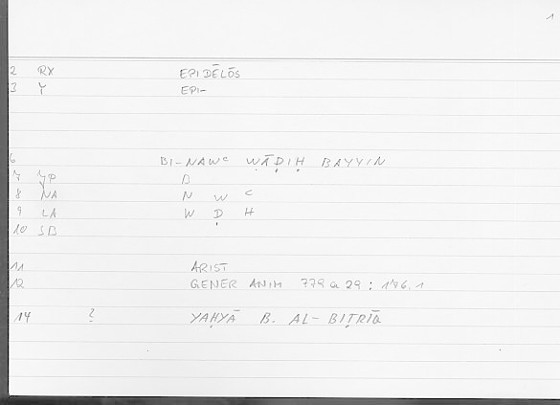 1
2 RX EPIDĒLŌS
3 Y EPI-
6 BI-NAWᶜ WĀḌIḤ BAYYIN
7 YP B
8 NA N W C
9 LA W Ḍ H
10 SB
11 ARIST
12 GENER ANIM 779 a 29 : 176.1
14 ? YAḤYĀ B. AL-BIṬRĪQ